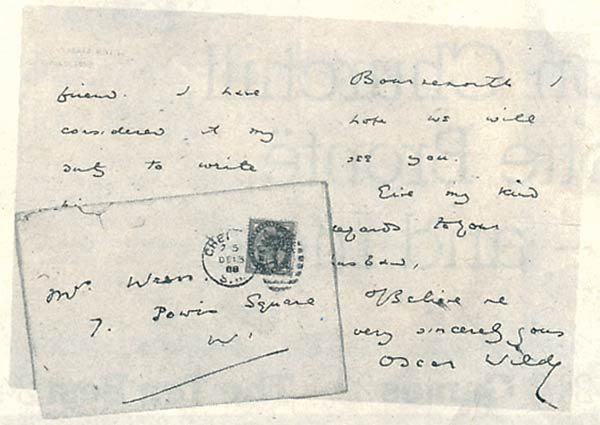 friend. I have
considered it my
duty to write
Bournemouth I
hope we will
see you.
Give my kind
regards to your
husband,
Believe me
very sincerely yours
Oscar Wilde
CHEL
7 5
DE 13
88
S.W.
Mrs.
7. Powis Square
W.